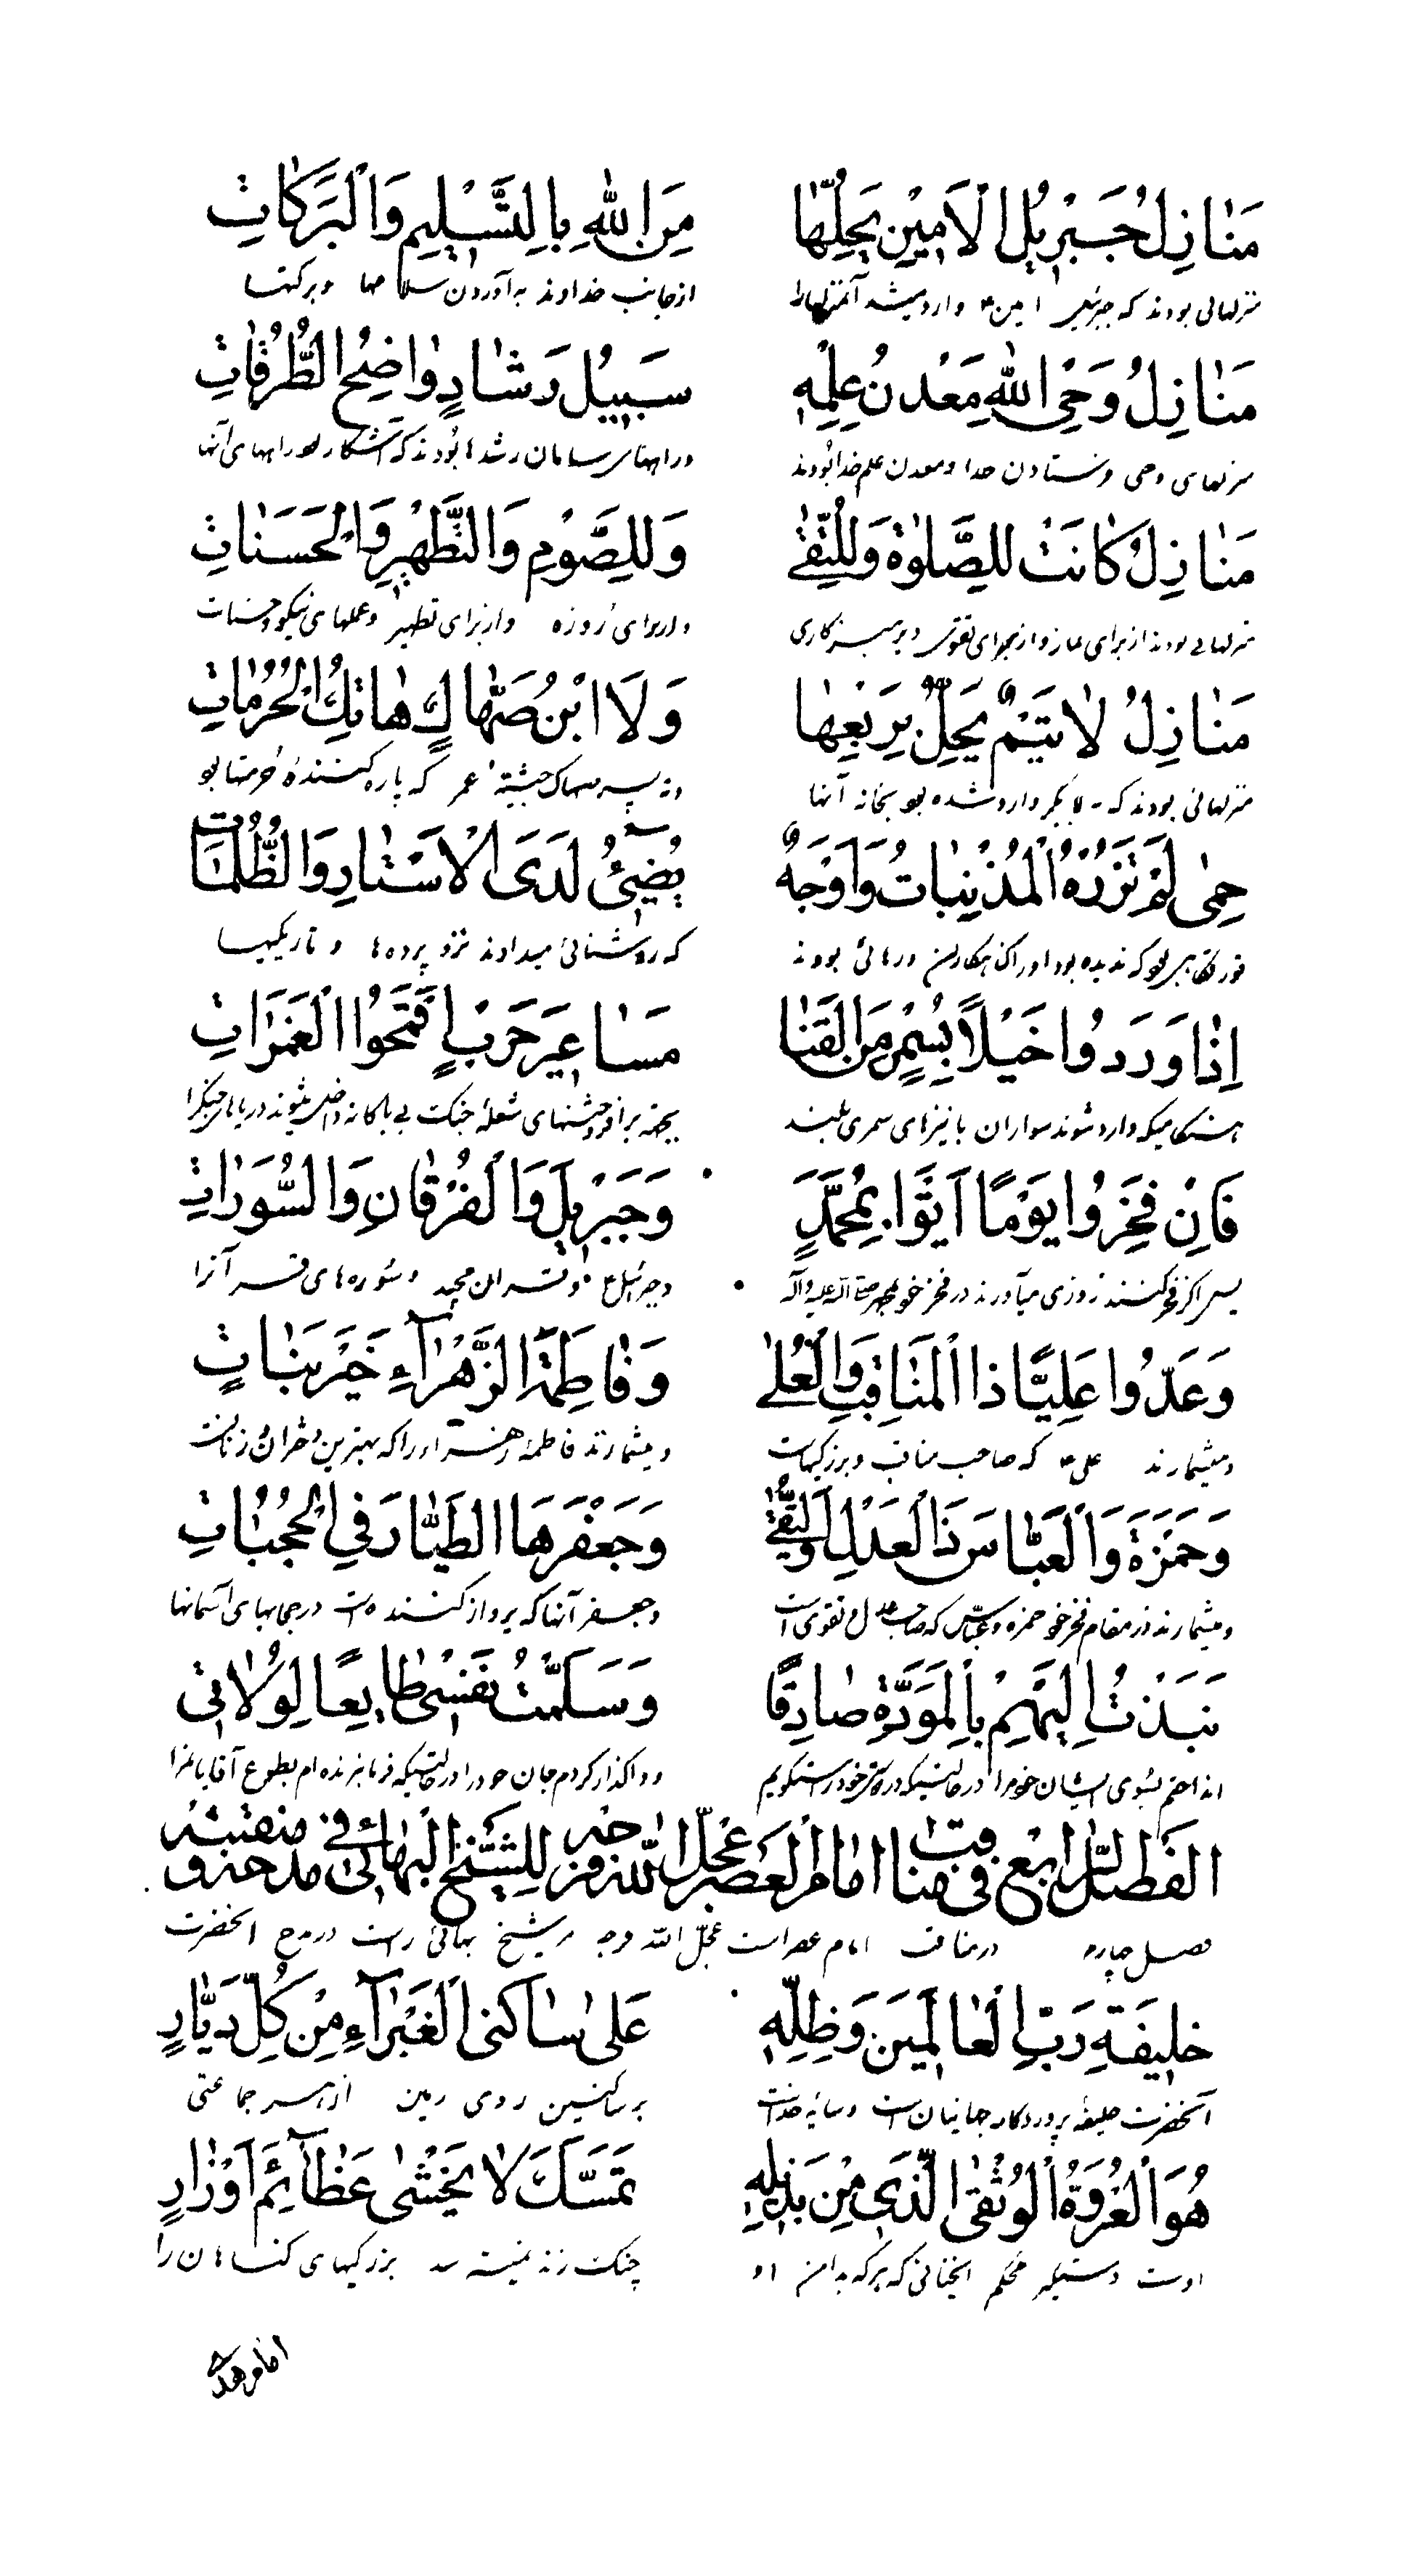 مَنٰازِلُ جَبْرَئيلُ الْاَمينِ يَحِلُّهٰا مِنَ اللهِ بِالتَّسْليمِ وَالْبَرَكٰاتِ
منزلهائی بودند که جبرئیل امین ع وارد میشد آنمنزلها را از جانب خداوند به آوردن سلامها و برکتها
مَنٰازِلُ وَحْیِ اللهِ مَعْدَنُ عِلْمِهِ سَبيلُ رَشٰادٍ وٰاضِحُ الطُّرُقٰاتِ
منزلهای وحی فرستادن خدا و معدن علم خدا بودند و راههای رشد بودند که آشکار بود راههای آنها
مَنٰازِلُ كٰانَتْ لِلصَّلٰوةِ وَلِلتُّقٰی وَلِلصَّوْمِ وَالتَّطْهيرِ وَالْحَسَنٰاتِ
منزلهائی بودند از برای نماز و از برای تقوی و پرهیزکاری و از برای روزه و از برای تطهیر و عملهای نیکو و حسنات
مَنٰازِلُ لٰا تَيْمٌ يَحِلُّ بِرَبْعِهٰا وَلَا ابْنُ صَهّٰاكٍ هٰاتِكُ الْحُرُمٰاتِ
منزلهائی بودند که ابابکر وارد نشده بود بخانه آنها و نه پسر صهاک حبشیّه عمر که پاره کننده حرمتها بود
حِمًی لَمْ تَزُرْهُ الْمُذْنِبٰاتُ وَاَوْجُهٌ يُضیٓئُ لَدَی الْاَسْتٰارِ وَالظُّلُمٰاتِ
که روشنائی میدادند نزد پرده ها و تاریکیها
اِذٰا وَرَدُوا خَيْلاً بِسُمْرٍ مِنَ الْقَنٰا مَسٰاعيرَ حَرْبٍ اَقْحَمُوا الْغَمَرٰاتِ
هنگامیکه وارد شوند سواران با نیزهای سمری بلند
فَاِنْ فَخِرُوا يَوْمًا اَتَوْا بِمُحَمَّدٍ وَجَبْرَئيلَ وَالْفُرْقٰانِ وَالسُّوَرٰاتِ
پس اگر فخر کنند روزی میآورند در فخر خود محمد صلی الله علیه و آله و جبرائیل ع و قرآن مجید و سوره های قرآنرا
وَعَدُّوا عَلِيًّا ذَا الْمَنٰاقِبِ وَالْعُلٰی وَفٰاطِمَةَ الزَّهْرٰآءِ خَيْرَ بَنٰاتٍ
و میشمارند علی ع که صاحب مناقب و بزرگیهاست و میشمارند فاطمه زهرا را که بهترین دختران زنانست
وَحَمْزَةَ وَالْعَبّٰاسَ ذَا الْعَدْلِ وَالتُّقٰی وَجَعْفَرَهَا الطَّيّٰارَ فِی الْحُجُبٰاتِ
و میشمارند در مقام فخر خود حمزه و عباس که صاحب عدل و تقوی است و جعفر آنها که پرواز کننده است در حجابهای آسمانها
نَبَذْتُ اِلَيْهِمْ بِالْمَوَدَّةِ صٰادِقًا وَسَلَّمْتُ نَفْسی طٰايِعًا لِوُلٰاتی
انداختم بسوی ایشان خود را در حالتیکه در دوستی خود راستگویم و واگذار کردم جان خود را در حالتیکه فرمانبرنده ام بطوع آقایانم را
الفَصْلُ الرّٰابِعُ فی مَنٰاقِبِ اِمٰامِ الْعَصْرِ عَجَّلَ اللهُ فَرَجَهُ لِلشَّيْخِ الْبَهٰائی فی مَدْحِهِ وَ مَنْقَبَتِهِ
فصل چهارم در مناقب امام عصر است عجّل الله فرجه مر شیخ بهائی راست در مدح آنحضرت
خَليفَةِ رَبِّ الْعٰالَمينَ وَظِلِّهِ عَلٰی سٰاكِنِی الْغَبْرٰآءِ مِنْ كُلِّ دَيّٰارٍ
آنحضرت خلیفه پروردگار جهانیان است و سایه خداست بر ساکنین روی زمین از هر جماعتی
هُوَ الْعُرْوَةُ الْوُثْقٰی الَّذی مِنْ بِذَيْلِهِ تَمَسَّكَ لٰا يَخْشٰی عَظٰآئِمَ اَوْزٰارٍ
اوست دستگیره محکم آنچنانی که هرکه بدامن او چنگ زند نمیترسد بزرگیهای گناهان را
امام هدی